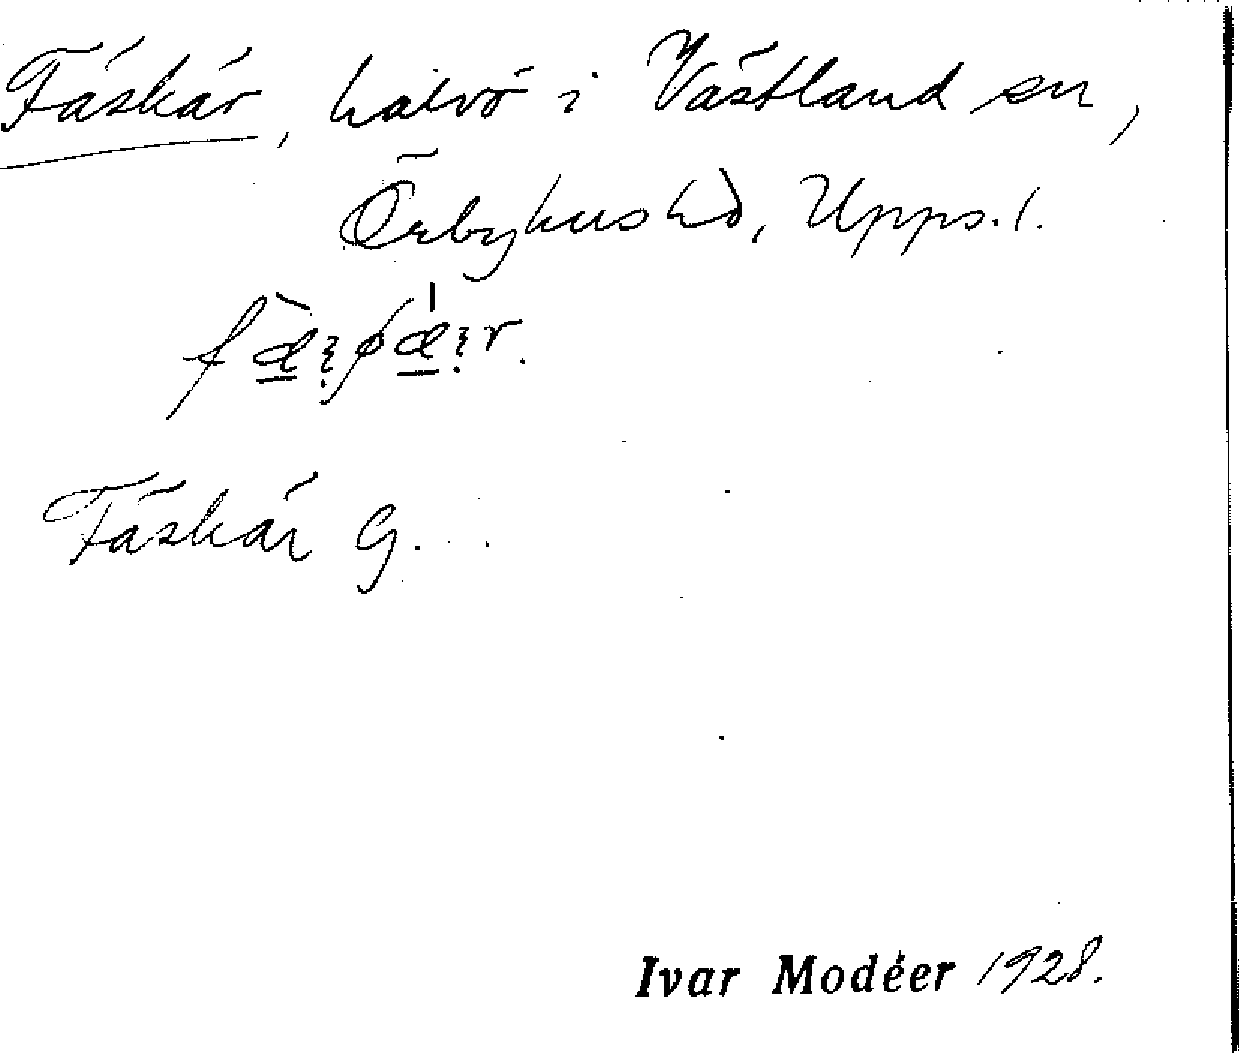 Fäskär, halvö i Västland sn,
Örbyhus hd, Upps. l.
Fäskär G.
Ivar Modéer 1928.